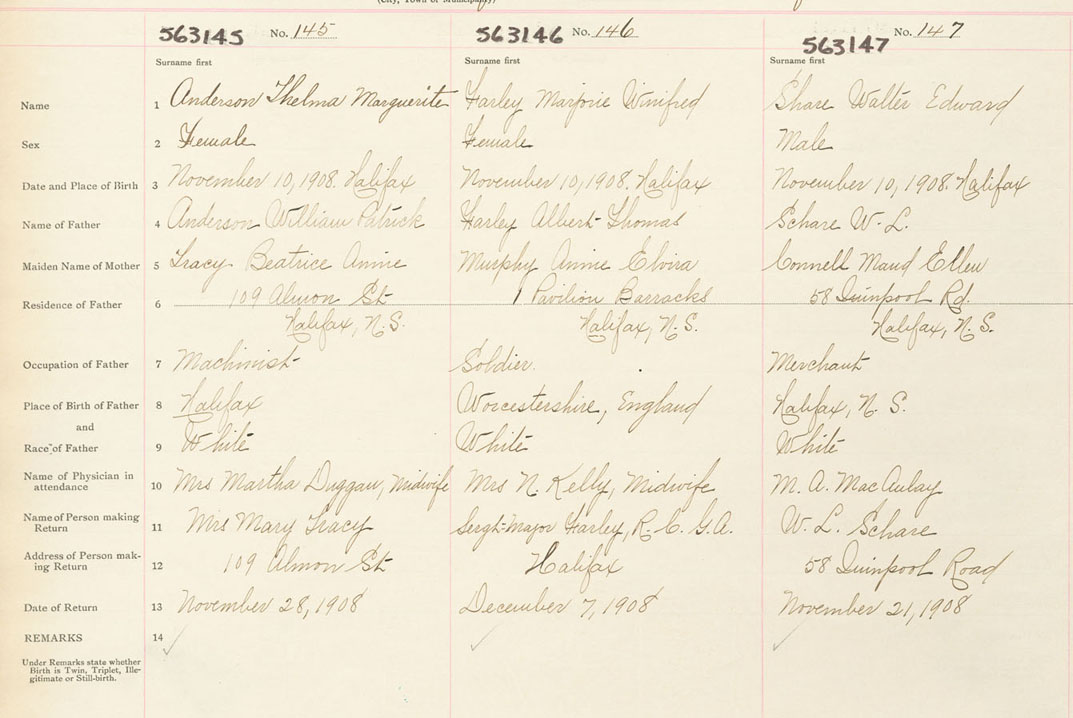 (City, Town or Municipality)
563145 No. 145 563146 No. 146 563147 No. 147
Surname first Surname first Surname first
Name 1 Anderson Thelma Marguerite Farley Marjorie Winifred Share Walter Edward
Sex 2 Female Female Male
Date and Place of Birth 3 November 10, 1908. Halifax November 10, 1908. Halifax November 10, 1908. Halifax
Name of Father 4 Anderson William Patrick Farley Albert Thomas Schare W. L.
Maiden Name of Mother 5 Tracy Beatrice Annie Murphy Annie Elvira Connell Maud Ellen
Residence of Father 6 109 Almon St. 1 Pavilion Barracks 58 Quinpool Rd.
Halifax, N. S. Halifax, N. S. Halifax, N. S.
Occupation of Father 7 Machinist Soldier. Merchant
Place of Birth of Father 8 Halifax Worcestershire, England Halifax, N. S.
and
Race of Father 9 White White White
Name of Physician in
attendance 10 Mrs Martha Duggan, Midwife Mrs N. Kelly, Midwife M. A. MacAulay
Name of Person making
Return 11 Mrs Mary Tracy Sergt-Major Farley, R. C. G. A. W. L. Schare
Address of Person mak-
ing Return 12 109 Almon St Halifax 58 Quinpool Road
Date of Return 13 November 28, 1908 December 7, 1908 November 21, 1908
REMARKS 14
Under Remarks state whether
Birth is Twin, Triplet, Ille-
gitimate or Still-birth.